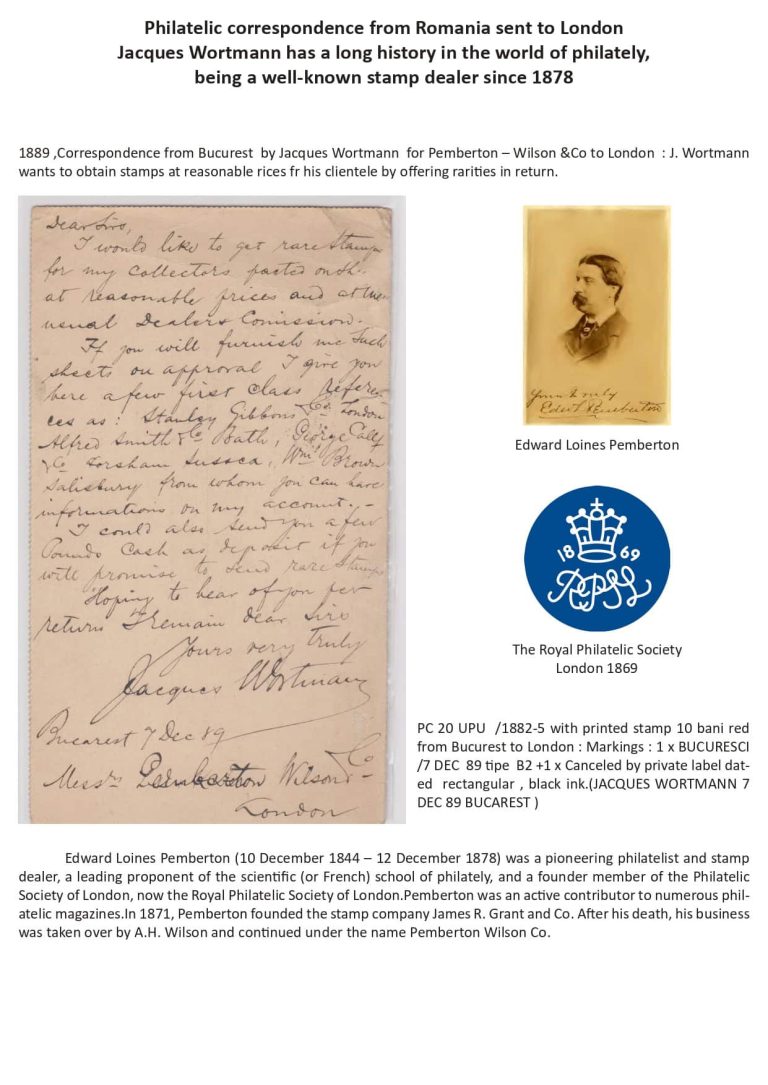 Philatelic correspondence from Romania sent to London
Jacques Wortmann has a long history in the world of philately,
being a well-known stamp dealer since 1878
1889 ,Correspondence from Bucurest by Jacques Wortmann for Pemberton – Wilson &Co to London : J. Wortmann
wants to obtain stamps at reasonable rices fr his clientele by offering rarities in return.
Dear Sirs,
I would like to get rare Stamps
for my Collectors pasted on sh.
at reasonable prices and at the
usual Dealers Comission.
If you will furnish me such
sheets on approval I give you
here a few first class Referen-
ces as: Stanley Gibbons & Co. London
Alfred Smith & Co Bath, George Calf
& Co Horsham Sussea, Wm. Brown
Salisbury from whom you can have
informations on my account.-
I could also send you a few
Pounds Cash as deposit if you
will promise to send rare Stamps
Hoping to hear of you per
return I remain dear Sirs
Yours very truly
Jacques Wortmann
Bucarest 7 Dec 89
Messrs Pemberton Wilson & Co
London
Yours truly
Edwd L Pemberton
Edward Loines Pemberton
1869
RPSL
The Royal Philatelic Society
London 1869
PC 20 UPU /1882-5 with printed stamp 10 bani red
from Bucurest to London : Markings : 1 x BUCURESCI
/7 DEC 89 tipe B2 +1 x Canceled by private label dat-
ed rectangular , black ink.(JACQUES WORTMANN 7
DEC 89 BUCAREST )
Edward Loines Pemberton (10 December 1844 – 12 December 1878) was a pioneering philatelist and stamp
dealer, a leading proponent of the scientific (or French) school of philately, and a founder member of the Philatelic
Society of London, now the Royal Philatelic Society of London.Pemberton was an active contributor to numerous phil-
atelic magazines.In 1871, Pemberton founded the stamp company James R. Grant and Co. After his death, his business
was taken over by A.H. Wilson and continued under the name Pemberton Wilson Co.